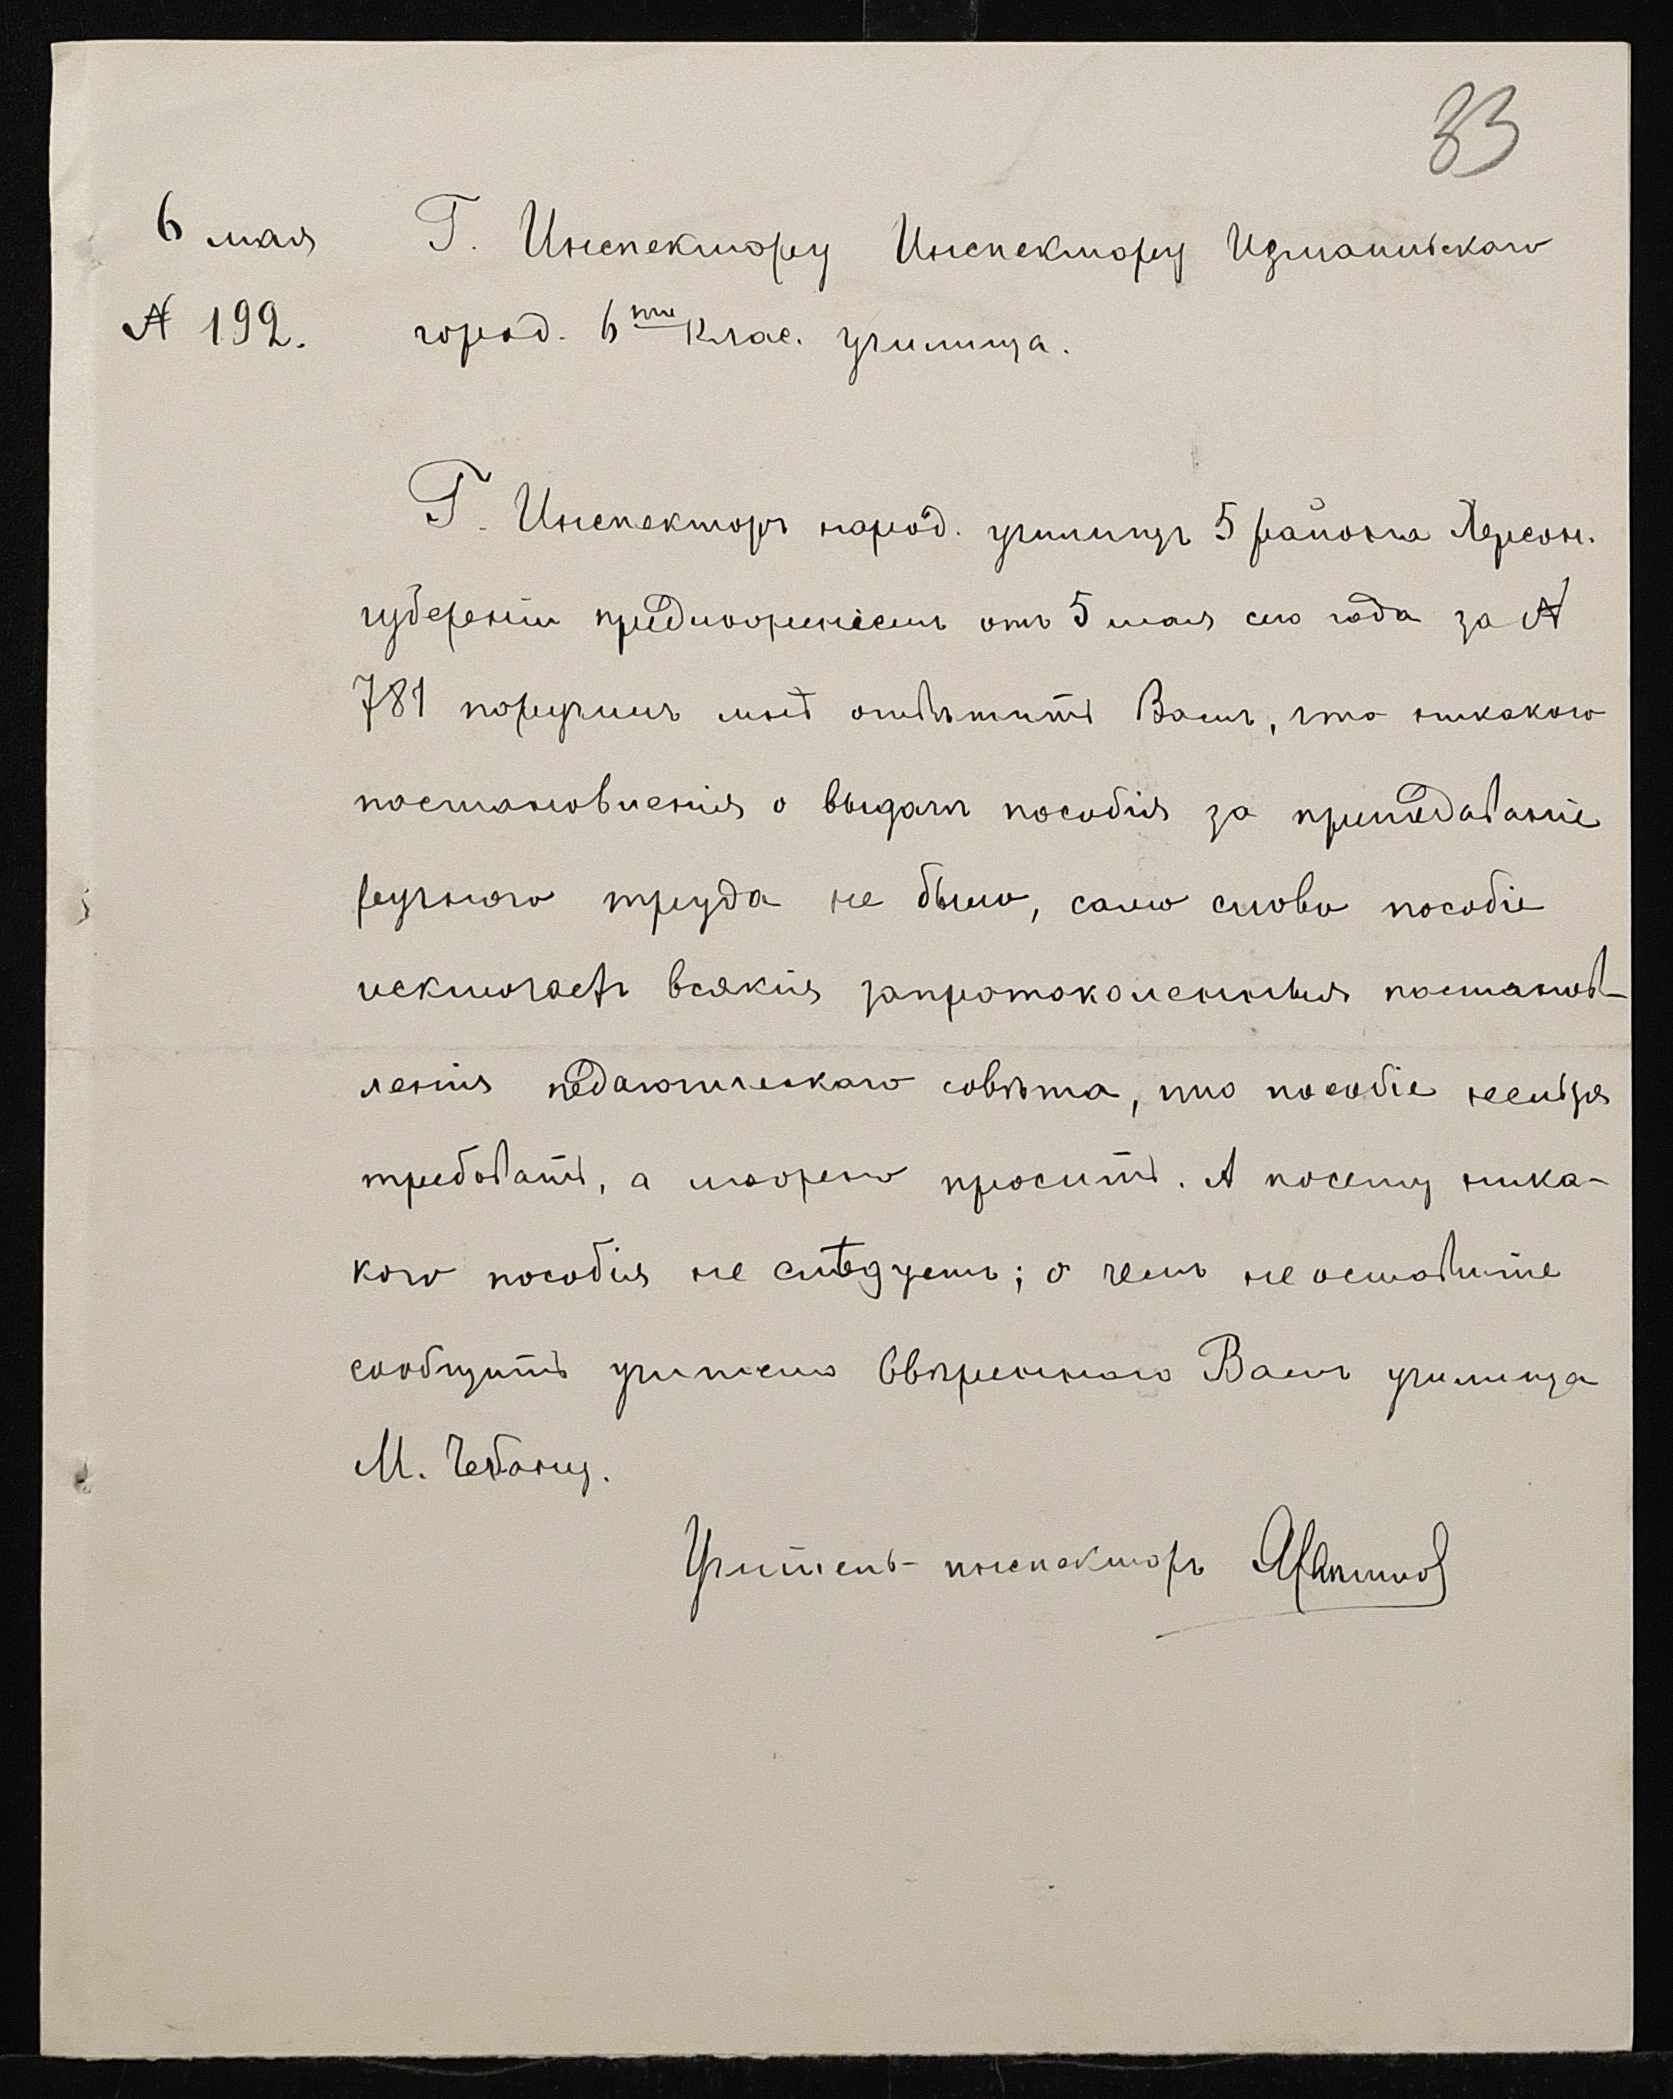 33
6 мая Г. Инспектору Инспектору Измаильскаго
№ 192. город. 6ти клас. училища.
Г. Инспекторъ народ. училищъ 5 района Херсон.
губерніи предложеніемъ отъ 5 мая сего года за №
781 поручилъ мнѣ отвѣтить Вамъ, что никакого
постановленія о выдачѣ пособія за преподаваніе
ручного труда не было, само слово пособіе
исключаетъ всякія запротоколенныя постанов-
ленія педагогическаго совѣта, ибо пособіе нельзя
требовать, а можно просить. А посему ника-
кого пособія не слѣдуетъ; о чемъ не оставьте
сообщить учителю ввѣреннаго Вамъ училища
М. Чебану.
Учитель-инспекторъ